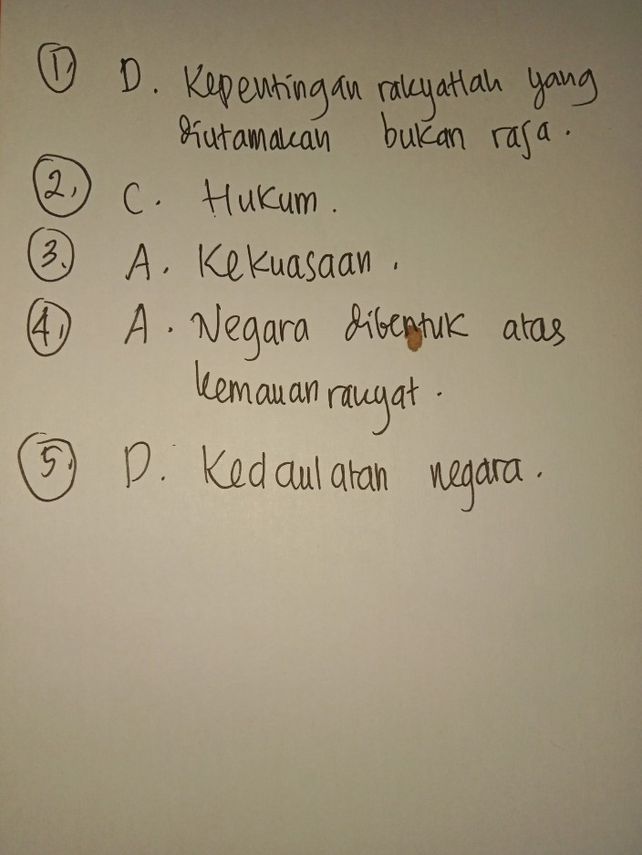 1. D. Kepentingan rakyatlah yang
diutamakan bukan raja.
2. C. Hukum.
3. A. Kekuasaan.
4. A. Negara dibentuk atas
kemauan rakyat.
5. D. Kedaulatan negara.